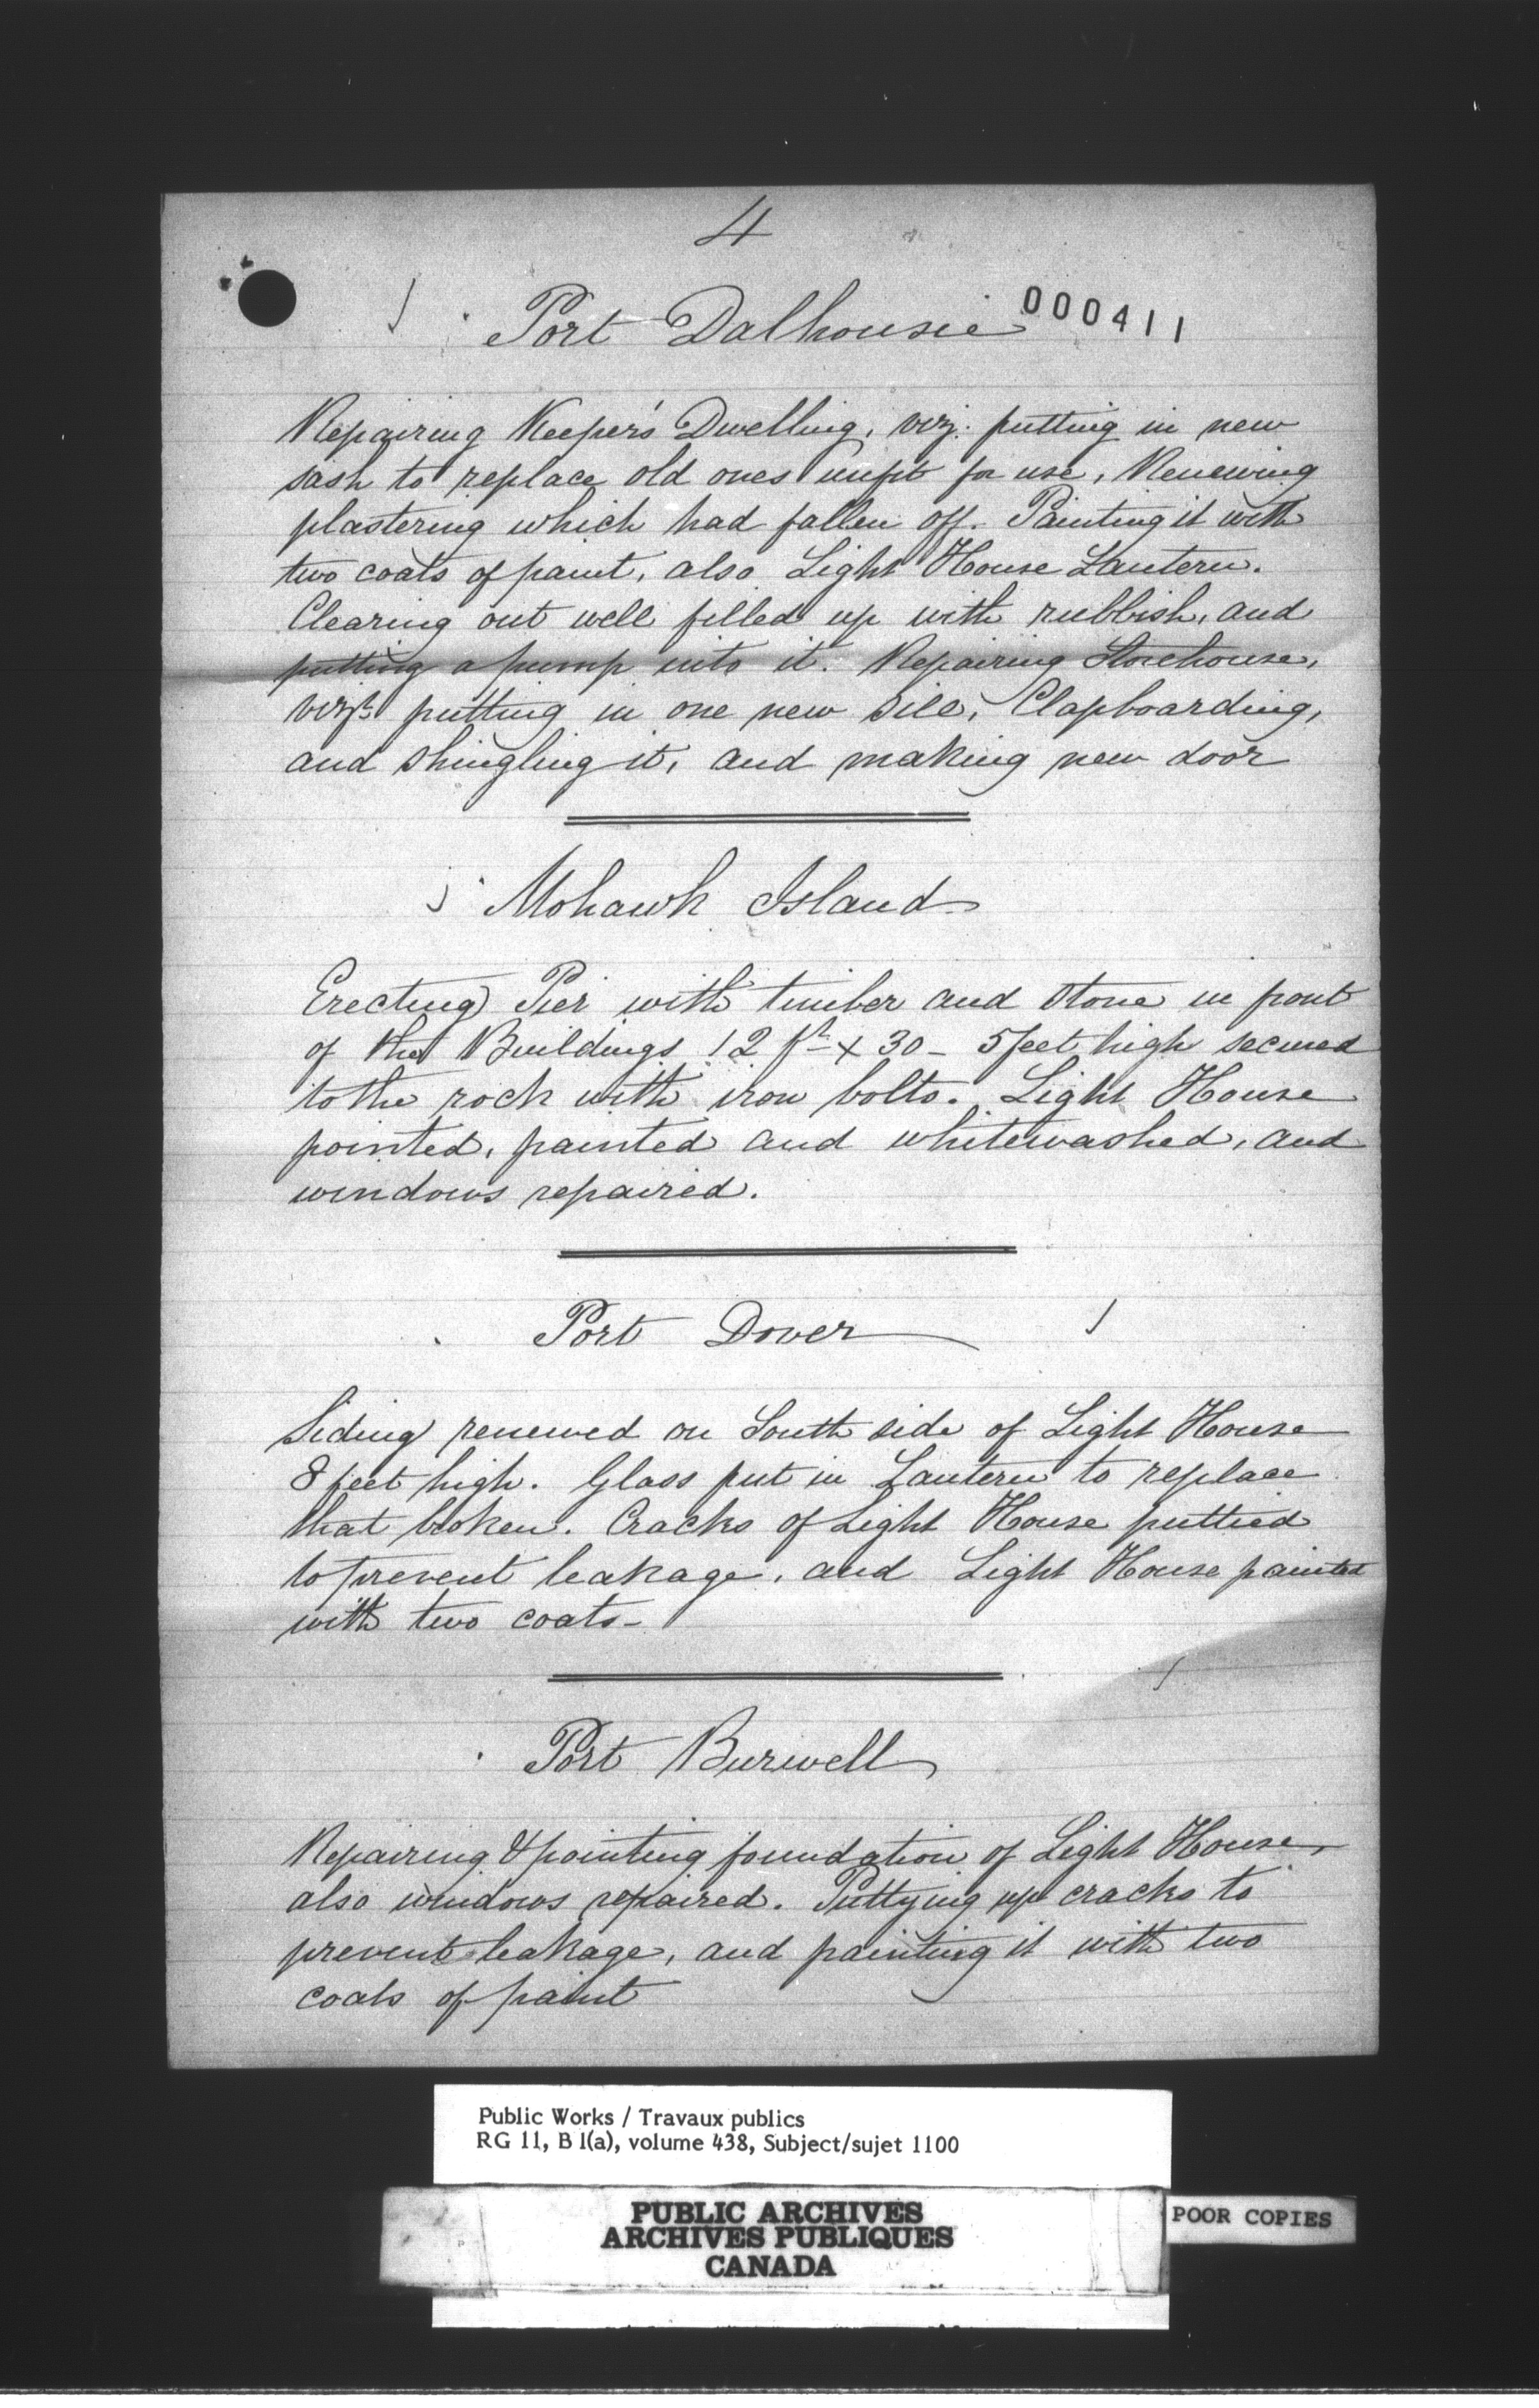 4
Port Dalhousie 000411
Repairing Keeper's Dwelling, viz: putting in new
sash to replace old ones unfit for use, Renewing
plastering which had fallen off. Painting it with
two coats of paint, also Light House Lantern.
Clearing out well filled up with rubbish, and
putting a pump into it. Repairing Storehouse,
vizt: putting in one new sill, Clapboarding,
and shingling it, and making new door
Mohawk Island
Erecting Pier with timber and stone in front
of the Buildings 12 ft x 30 - 5 feet high secured
to the rock with iron bolts. Light House
pointed, painted and whitewashed, and
windows repaired.
Port Dover
Siding renewed on South side of Light House
8 feet high. Glass put in Lantern to replace
that broken. Cracks of Light House puttied
to prevent leakage, and Light House painted
with two coats -
Port Burwell
Repairing & pointing foundation of Light House,
also windows repaired. Puttying up cracks to
prevent leakage, and painting it with two
coats of paint
Public Works / Travaux publics
RG 11, B 1(a), volume 438, Subject/sujet 1100
PUBLIC ARCHIVES
ARCHIVES PUBLIQUES
CANADA
POOR COPIES